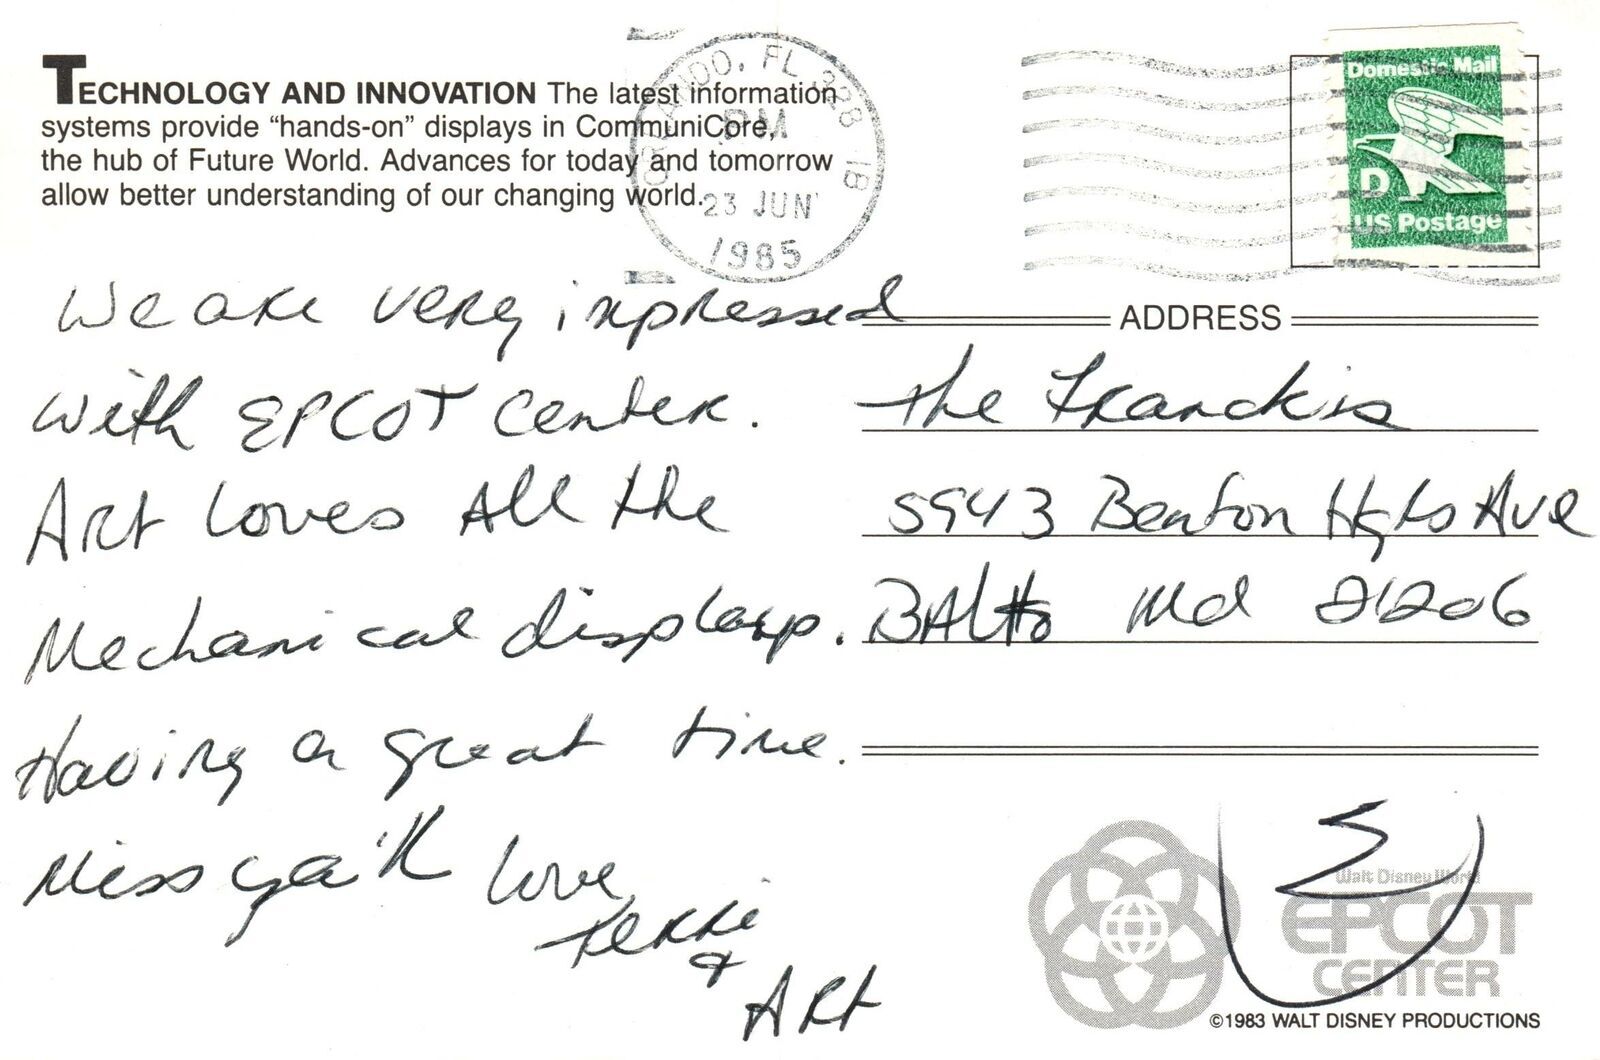 TECHNOLOGY AND INNOVATION The latest information
systems provide “hands-on” displays in CommuniCore,
the hub of Future World. Advances for today and tomorrow
allow better understanding of our changing world.
ORLANDO, FL 328 1B
PM
23 JUN
1985
Domestic Mail
D
US Postage
We are very impressed
with EPCOT Center.
Art loves All the
Mechanical displays.
Having a great time.
Miss ya'll love,
Terri
&
Art
ADDRESS
The Franckis
5943 Benton Hgts Ave
BALto Md 21206
Walt Disney World
EPCOT
CENTER
©1983 WALT DISNEY PRODUCTIONS